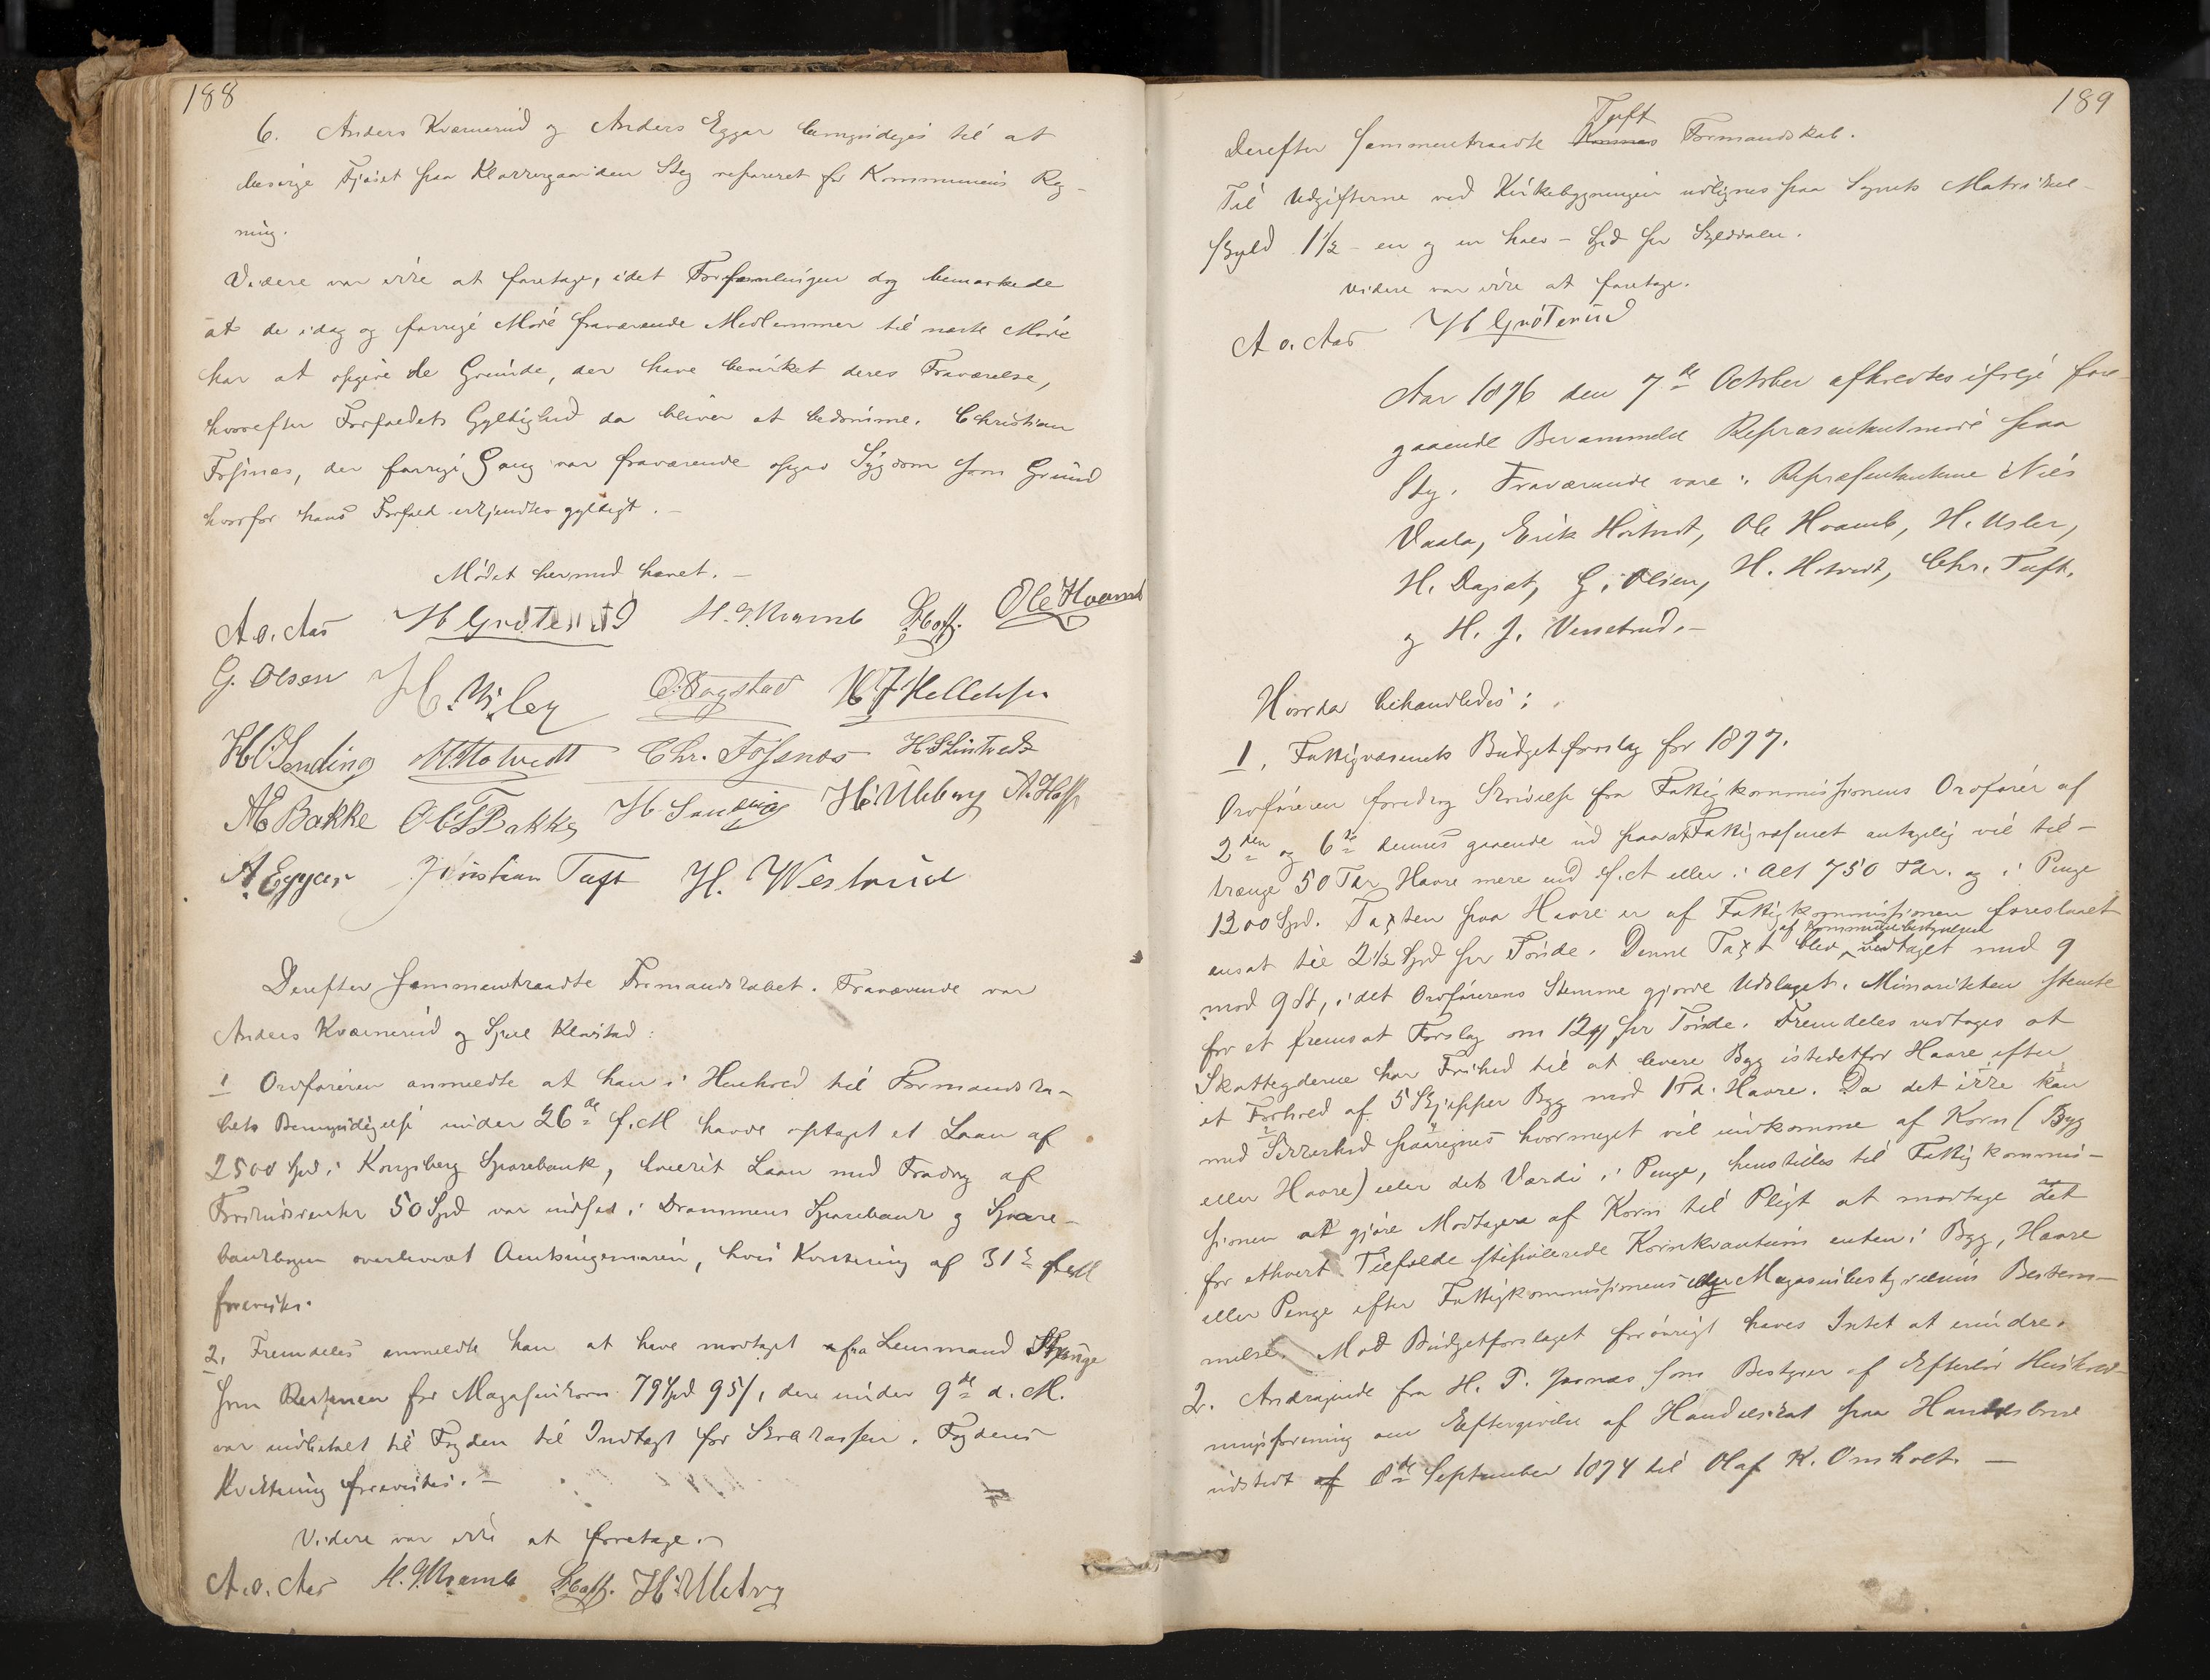 188
6. Anders Kværnerud og Anders Eggar bemyndiges til at
besørge Fjøset paa Klokkergaarden Steg repareret for Kommunens Reg-
ning.
Videre var ikke at foretage, idet Forsamlingen dog bemærkede
at de idag og forrige Møde fraværende Medlemmer til næste Møde
har at opgive de Grunde, der have bevirket deres Fraværelse,
hvorefter Forfaldets Gyldighed da bliver at bedømme. Christian
Fosnæs, der forrige Gang var fraværende opgav Sygdom som Grund
hvorfor hans Forfald erkjendtes gyldigt. –
Mødet hermed hævet. –
A. O. Aas H Grøterud H. G. Kramb Ole Hvamb
G. Olsen H. Usler O. Bogstad
H O Sending H. Hotvedt Chr. Fosnæs H S Lintvedt
A E Bakke O T Bakke H. Sending H. Ulleberg A. Hoff
A. Eggar Kristian Tuft H. Wesetrud
Derefter sammentraadte Formandskabet. Fraværende var
Anders Kværnerud og Sjul Klovstad:
1 Ordføreren anmeldte at han i Henhold til Formandska-
bets Bemyndigelse under 26de f. M havde optaget et Laan af
2500 Spd i Kongsberg Sparebank, hvilket Laan med Fradrag af
Forskudsrenter 50 Spd var indsat i Drammens Sparebank og Spare-
bankbogen overleveret Amtsingeniøren, hvis Kvittering af 31te f. M
forevistes.
2. Fremdeles anmeldte han at have modtaget fra Lensmand
som Restancer for Magasinkorn 79 Spd 95 /, der under 9de d. M.
var indbetalt til Fogden til Indtægt for Skolekassen. Fogdens
Kvittering forevistes. –
Videre var ikke at foretage. –
A. O. Aas H. G. Kramb H. Ulleberg
189
Tuft
Derefter sammentraadte Komnæs Formandskab.
Til Udgifterne ved Kirkebygningen udlignes paa Sognets Matrikel-
skyld 1½ – en og en halv – Spd pr Skylddaler.
Videre var ikke at foretage.
A O. Aas H Grøterud
Aar 1876 den 7de October afholdtes ifølge fore-
gaaende Berammelse Repræsentantmøde paa
Steg. Fraværende vare: Repræsentanterne Nils
Vaala, Erik Hotvedt, Ole Hvamb, H. Usler,
H. Dagsæt, G. Olsen, H. Hotvedt, Chr. Tuft,
og H. J. Wesetrud. –
Hvorda behandledes:
1, Fattigvæsenets Budgetforslag for 1877.
Ordføreren foredrog Skrivelse fra Fattigkommissionens Ordfører af
2den og 6te dennes gaaende ud paa at Fattigvæsenet antagelig vil til-
trænge 50 Tdr Havre mere end f. A eller i Alt 750 Tdr. og i Penge
1300 Spd. Taxten paa Havre er af Fattigkommissionen foreslaaet
af Kommunebestyrelsen
ansat til 2½ Spd pr Tønde. Denne Taxt blev vedtaget med 9
mod 9 St, idet Ordførerens Stemme gjorde Udslaget. Minoriteten stemte
for et fremsat Forslag om 12 pr Tønde. Fremdeles vedtages at
Skatteyderne har Frihed til at levere Byg istedetfor Havre efter
et Forhold af 5 Skjepper Byg mod 1 Td. Havre. Da det ikke kan
med Sikkerhed paaregnes hvormeget vil indkomme af Korn (Byg
eller Havre) eller dets Værdi i Penge, henstilles til Fattigkommis-
sionen at gjøre Modtagere af Korn til Pligt at modtage det
for ethvert Tilfælde stipulerede Kornkvantum enten i Byg, Havre
eller Penge efter Fattigkommissionens eller Magasinbestyrelsens Bestem-
melse. Mod Budgetforslaget forøvrigt haves Intet at erindre.
2. Andragende fra H. T. Jarnæs som Bestyrer af Efteløt Hushold-
ningsforening om Eftergivelse af Handelsskat paa Handelsbrev
udstedt af 8de September 1874 til Olaf K. Omholt. –